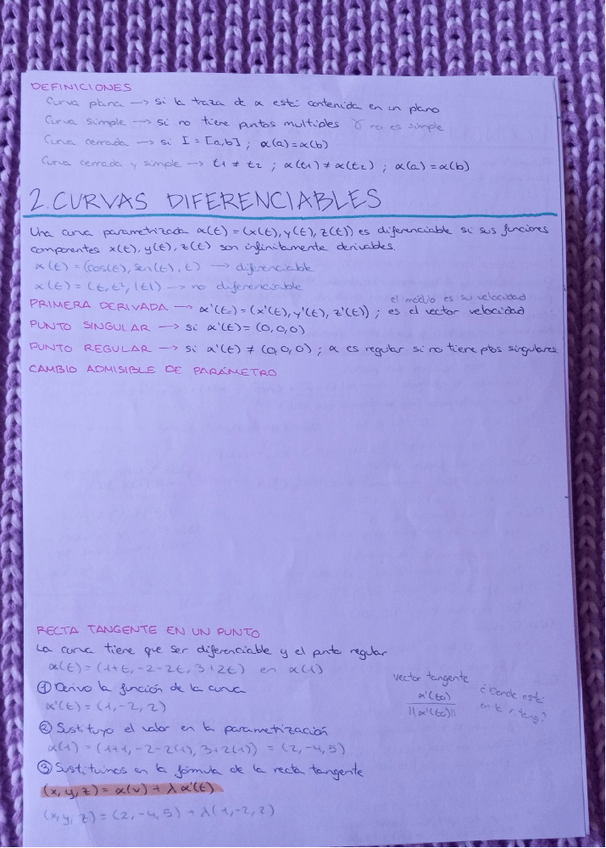 DEFINICIONES
Curva plana → si la traza de α está contenida en un plano
Curva simple → si no tiene puntos multiples γ no es simple
Curva cerrada → si I = [a,b] ; α(a)=α(b)
Curva cerrada y simple → t1 ≠ t2 ; α(t1) ≠ α(t2) ; α(a)=α(b)
2. CURVAS DIFERENCIABLES
Una curva parametrizada α(t)=(x(t), y(t), z(t)) es diferenciable si sus funciones
componentes x(t), y(t), z(t) son infinitamente derivables.
α(t)=(cos(t), sen(t), t) → diferenciable
α(t)=(t, t², |t|) → no diferenciable
el modulo es su velocidad
PRIMERA DERIVADA → α'(to)=(x'(t), y'(t), z'(t)) ; es el vector velocidad
PUNTO SINGULAR → si α'(t)=(0,0,0)
PUNTO REGULAR → si α'(t) ≠ (0,0,0) ; α es regular si no tiene ptos singulares
CAMBIO ADMISIBLE DE PARÁMETRO
RECTA TANGENTE EN UN PUNTO
La curva tiene que ser diferenciable y el punto regular
α(t)=(1+t, -2-2t, 3+2t) en α(1)
① Derivo la función de la curva
α'(t)=(1,-2,2)
② Sustituyo el valor en la parametrización
α(1)=(1+1, -2-2(1), 3+2(1)) = (2,-4,5)
③ Sustituimos en la fórmula de la recta tangente
(x,y,z)=α(v)+λα'(t)
(x,y,z)=(2,-4,5)+λ(1,-2,2)
vector tangente
α'(to)
||α'(to)||
¿Donde está
en la r. tang?